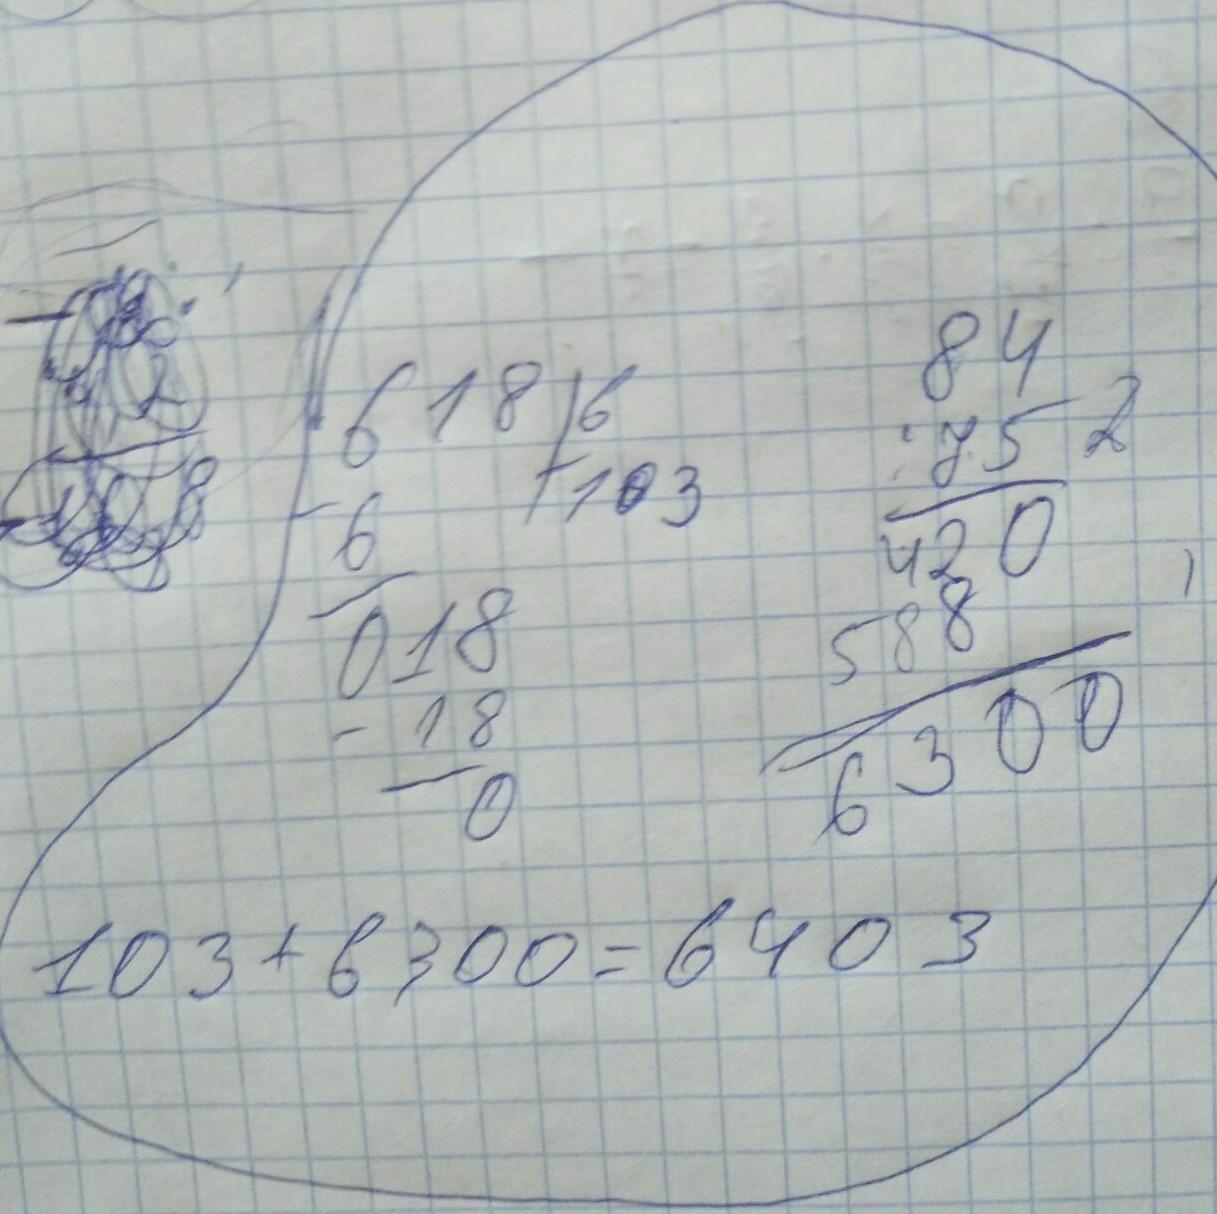 618 6
103
- 6
018
- 18
0
84
75 2
420
588
6300
103+6300=6403